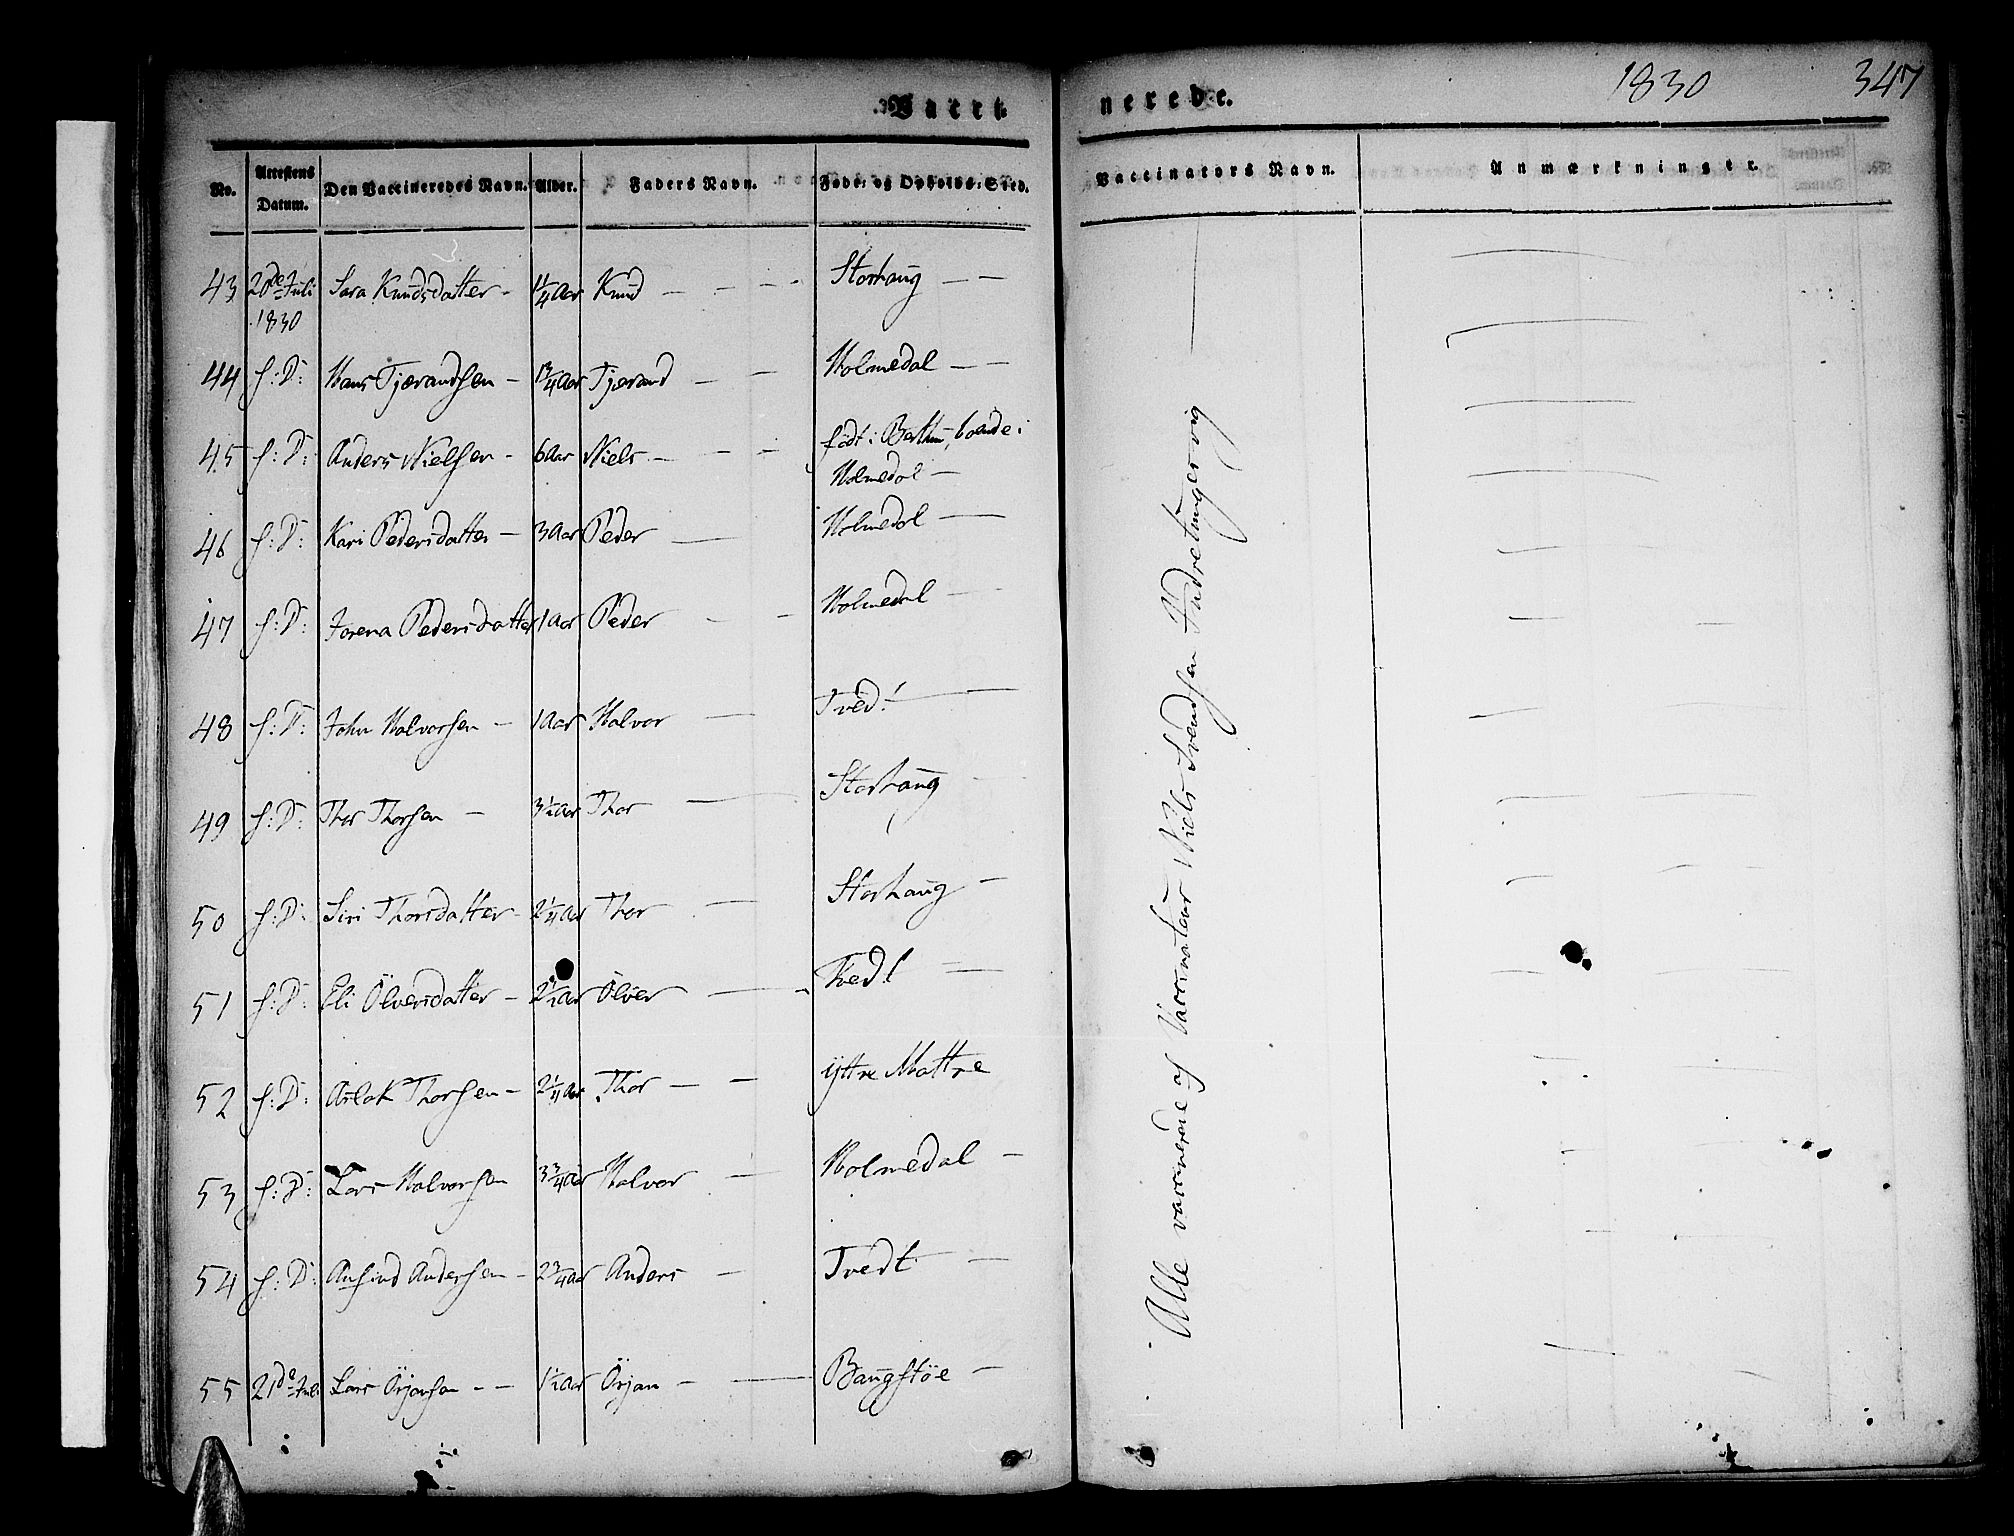 Vacci nerede.
1830
347
No.
Attestens Datum.
Den Vaccineredes Navn.
Alder.
Faders Navn.
Føde- og Opholds-Sted.
Vaccinators Navn.
Anmærkninger.
43 20de Juli 1830 Sara Knudsdatter - 1 1/4 Aar Knud - - - Storhaug - -
44 s: D: Hans Tjærandsen - 1 3/4 Aar Tjærand - - Holmedal - -
45 s: D: Anders Nielsen - 6 Aar Niels - - - født i boende i
Holmedal -
46 s: D: Kari Pedersdatter - 3 Aar Peder - Holmedal -
47 s: D: Pedersdatter 1 Aar Peder - - Holmedal -
48 s: D: John Halvorsen - 1 Aar Halvor - Tvedt -
49 s: D: Thor Thorsen - 3 1/2 Aar Thor - Storhaug -
50 s: D: Siri Thorsdatter - 2 1/4 Aar Thor - Storhaug -
51 s: D: Eli Ölversdatter - 2 1/2 Aar Ölver - - Tvedt -
52 s: D: Aslak Thorsen - 2 1/4 Aar Thor - - Ÿttre Mattre
53 s: D: Lars Halvorsen 3 3/4 Aar Halvor - Holmedal -
54 s: D: Anfind Andersen - 2 3/4 Aar Anders - Tvedt -
55 21de Juli Lars Örjansen - - 1 1/2 Aar Örjan - - -
Alle vaccinerede af Vaccinateur Niels Svendsen Indretungervig